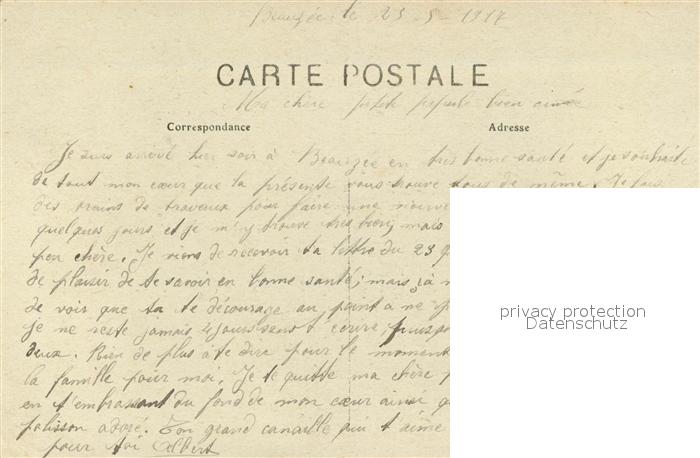 Beauzée le 25-5-1917
CARTE POSTALE
Ma chère petite poupule bien aimée
Correspondance
Adresse
Je suis arrivé hier soir à Beauzée en très bonne santé et je souhaite
de tout mon cœur que la présente vous trouve tous de même. Je fais
des trains de travaux pour faire une
quelques jours et je m'y trouve très bien, mais
peu chère. Je viens de recevoir ta lettre du 23
de plaisir de te savoir en bonne santé; mais
de voir que ta te décourage au point à ne
je ne reste jamais 4 jours sent écrire
deux. Rien de plus à te dire pour le moment
la famille pour moi. Je te quitte ma chère
en t'embrassant du fond de mon cœur ainsi
polisson adoré. Ton grand canaille qui t'aime
pour toi Albert
privacy protection
Datenschutz